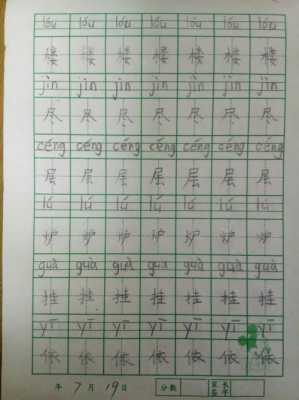 lóu lóu lóu lóu lóu lóu lóu
楼 楼 楼 楼 楼 楼 楼
jìn jìn jìn jìn jìn jìn jìn
尽 尽 尽 尽 尽 尽 尽
céng céng céng céng céng céng céng
层 层 层 层 层 层 层
lú lú lú lú lú lú lú
炉 炉 炉 炉 炉 炉 炉
guà guà guà guà guà guà guà
挂 挂 挂 挂 挂 挂 挂
yī yī yī yī yī yī yī
依 依 依 依 依 依 依
年 7 月 19 日 分数 家长签字